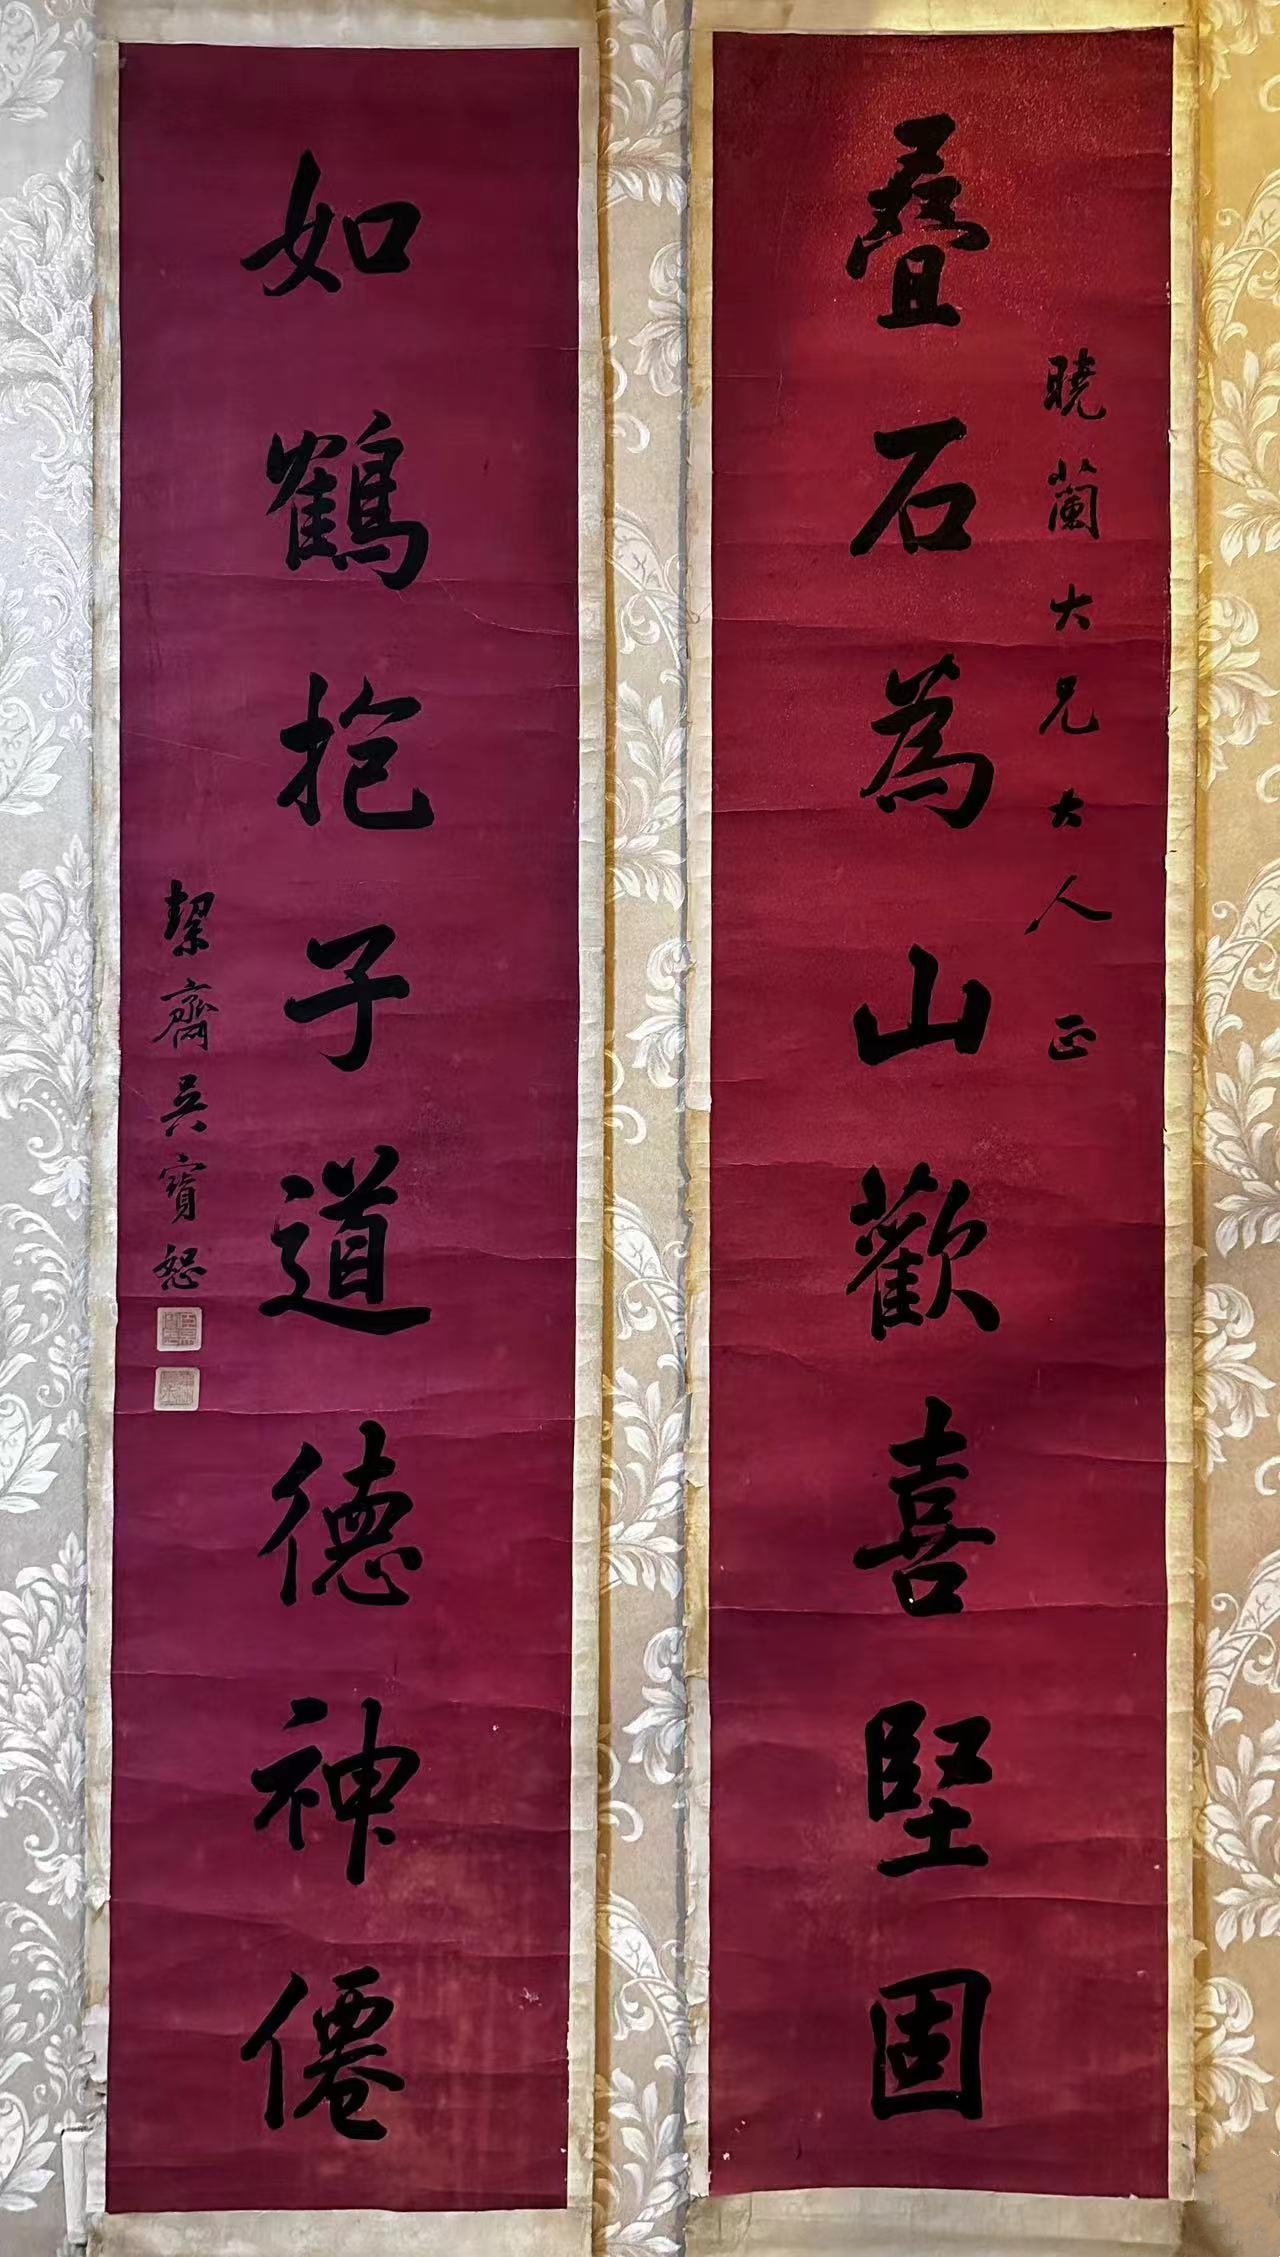 叠石為山歡喜堅固
曉蘭大兄大人正
如鶴抱子道德神僊
絜齋吳寶恕